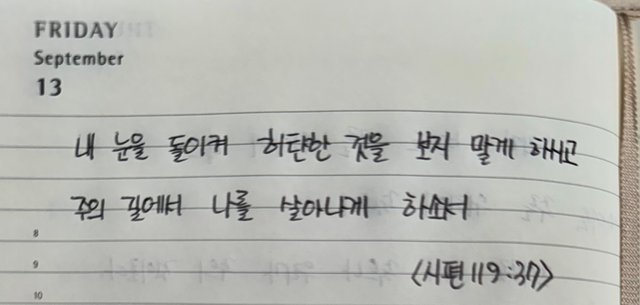 FRIDAY
September
13
내 눈을 돌이켜 허탄한 것을 보지 말게 하시고
주의 길에서 나를 살아나게 하소서
8
9
<시편 119:37>
10